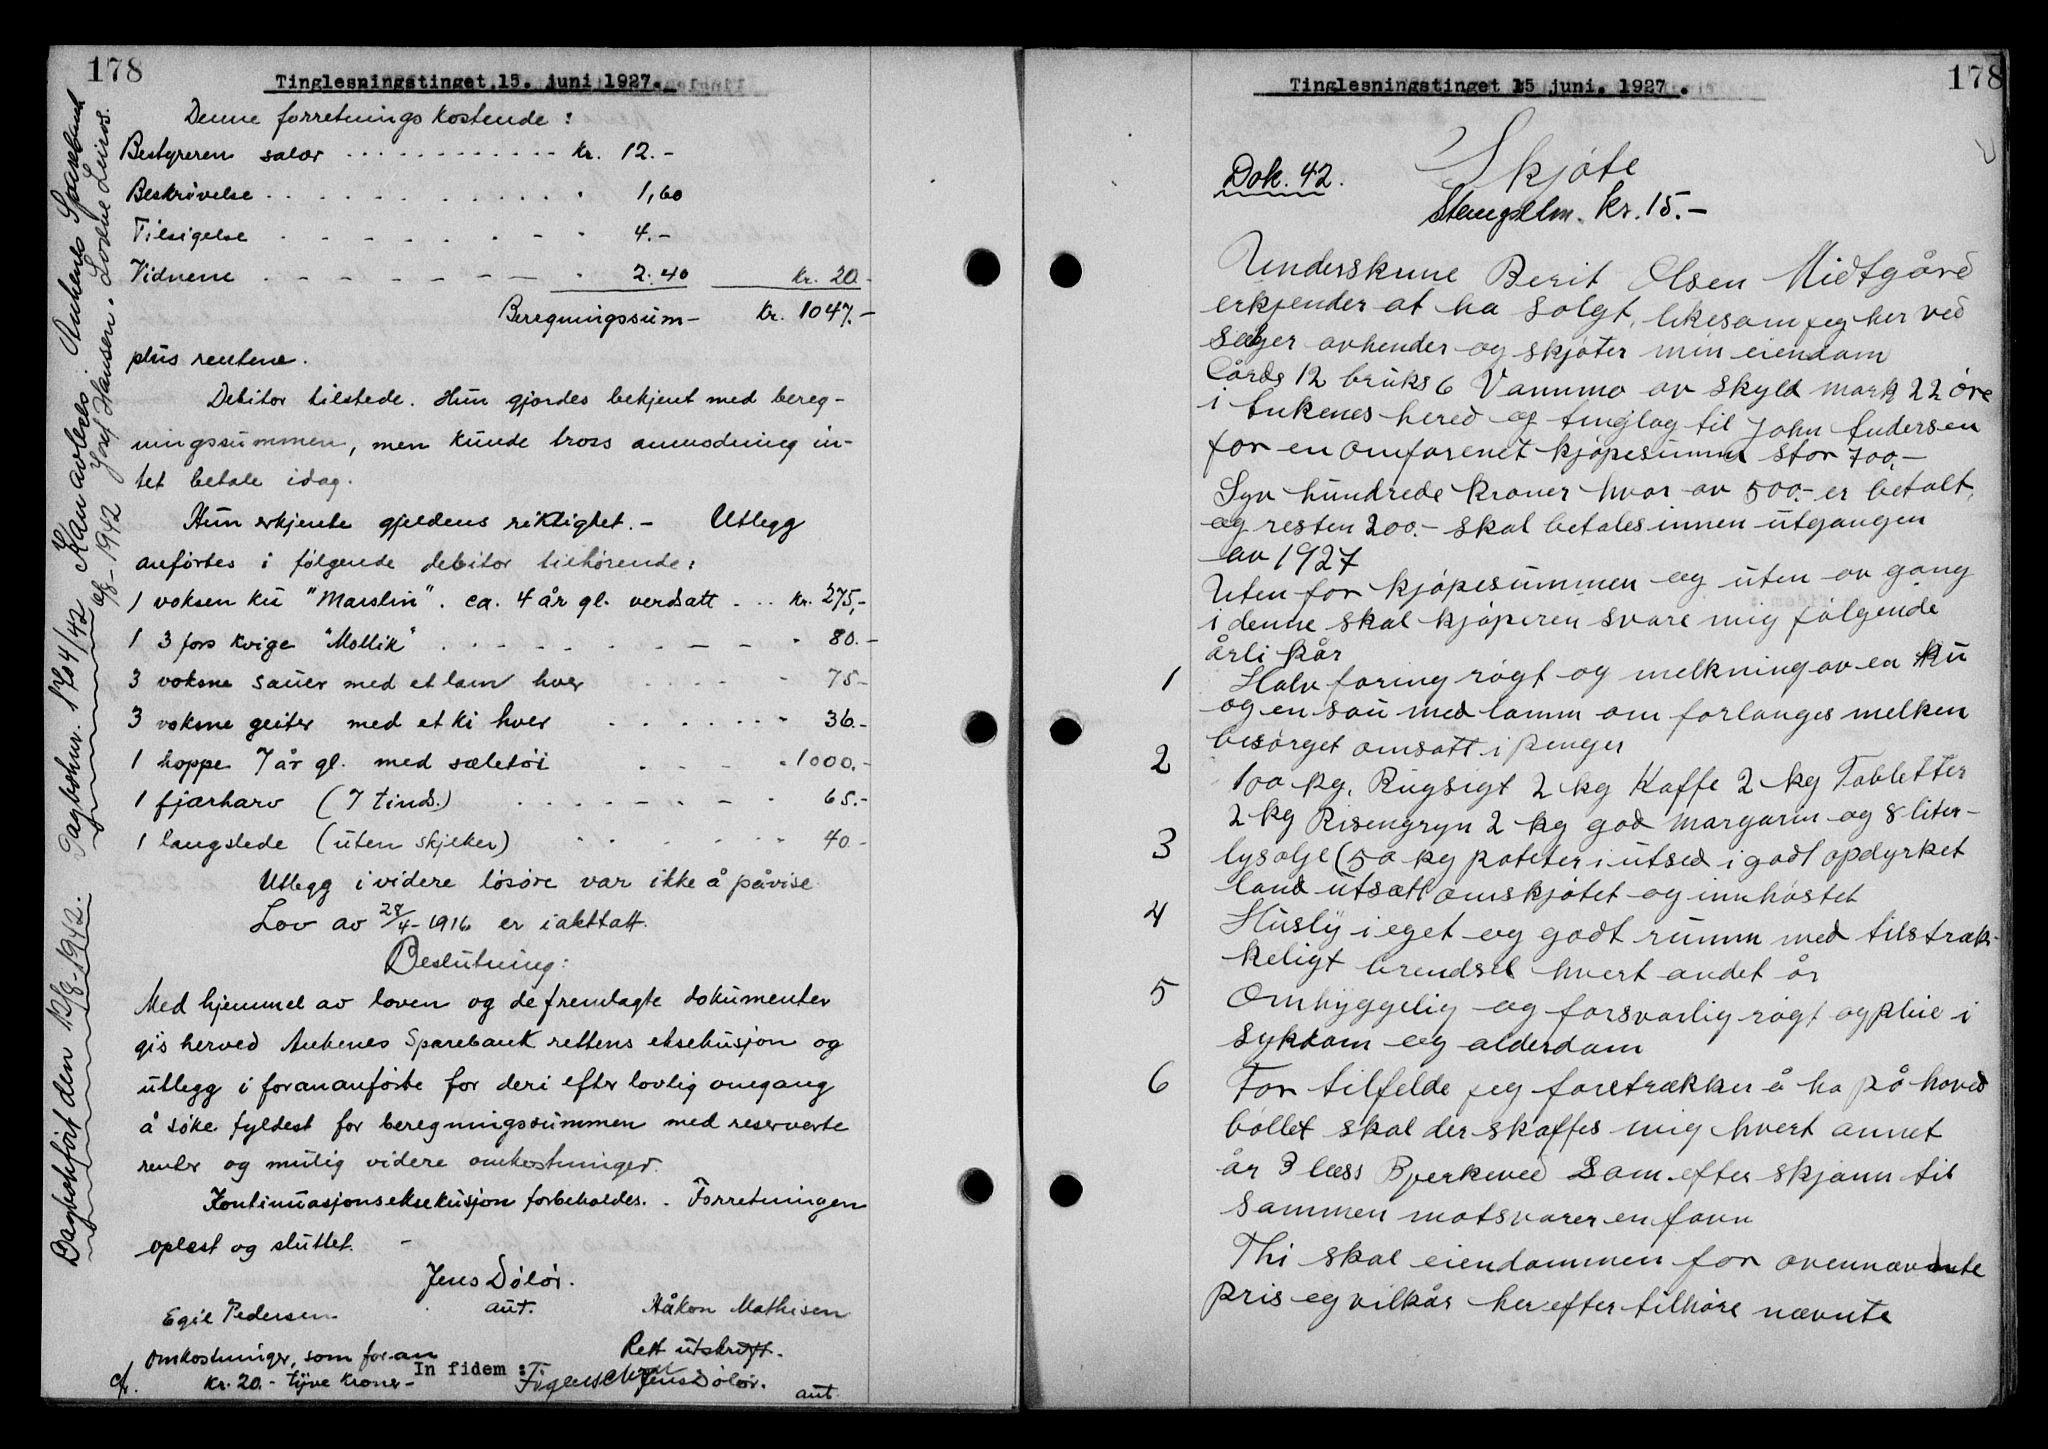 178
Tinglesningstinget 15. juni 1927.
Denne forretnings kostende :
Bestyreren salær . . . . . . . . . . . kr. 12.-
Beskrivelse . . . . . . . . . . . " 1,60
Tilsigelse . . . . . . . . . " 4.-
Vidnene . . . . . . . . . " 2.40 kr. 20.-
Beregningssum- kr. 1047.-
plus rentene.
Debitor tilstede. Hun gjordes bekjent med bereg-
ningssummen, men kunde tross anmodning in-
tet betale idag.
Hun erkjente gjeldens riktighet. - Utlegg
anførtes i følgende debitor tilhørende:
1 voksen ku "Marslin". ca. 4 år gl. verdsatt . .. kr. 275,-
1 3 fors kvige "Mollik" . . . . . . . " 80.-
3 voksne sauer med et lam hver . . . . " 75-
3 voksne geiter med et ki hver . . . . . . " 36.-
1 hoppe 7 år gl. med sæletøi . . . . " 1000.-
1 fjærharv (7 tinds.) . . . . . . . " 65.-
1 langslede (uten skjeker) . . . . . " 40.-
Utlegg i videre løsøre var ikke å påvise.
Lov av 28/4-1916 er iakttatt.
Beslutning:
Med hjemmel av loven og de fremlagte dokumenter
gis herved Ankenes Sparebank rettens eksekusjon og
utlegg i forananførte for deri efter lovlig omgang
å søke fyldest for beregningssummen med reserverte
renter og mulig videre omkostninger.
Kontinuasjonseksekusjon forbeholdes. - Forretningen
oplest og sluttet. -
Jens Dølør.
aut.
Egil Pedersen. Håkon Mathisen
omkostninger, som foran Rett utskrift.
kr. 20.- tyve kroner- In fidem : Jens Dølør.
cfr. aut.
Dagbokført den 13/8-1942. Dagboknr. 1704/42 Kan avleses. Ankenes Sparebank
cfr-1942 Josef Hansen. Lodve Leiros.
Tinglesningstinget 15 juni. 1927.
178
Skjøte
Dok. 42.
Stempelm. kr. 15.-
Underskrevne Berit Olsen Midtgård
erkjender at ha solgt, likesom jeg her ved
sælger avhender og skjøter min eiendom
Gårds 12 bruks 6 Vammo av skyld mark 22 øre
i Ankenes hered og tinglag til John Andersen
for en omforenet kjøpesumm stor 700.-
Syv hundrede kroner hvor av 500.- er betalt,
og resten 200.- skal betales innen utgangen
av 1927
Uten for kjøpesummen og uten av gang
i denne skal kjøperen svare mig følgende
årli kår
1 Halv foring røgt og melkning av en ku
og en sau med lamm om forlanges melken
besørget omsatt i penger
2 100 kg. Rugsigt 2 kg Kaffe 2 kg Tabletter
2 kg Risengryn 2 kg god margarin og 8 liter-
3 lysolje (50 kg poteter i utsed i godt opdyrket
land utsatt omskjøtet og innhøstet
4 Husly i eget og godt rumm med tilstræk-
keligt brendsel hvert andet år
5 Omhyggelig og forsvarlig røgt og pleie i
sykdom og alderdom
6 For tilfelde jeg foretrækker å ha på hoved
bøllet skal der skaffes mig hvert annet
år 3 læss Bjerkeved som efter skjønn til
sammen motsvarer en favn
Thi skal eiendommen for ovennævnte
pris og vilkår her efter tilhøre nævnte